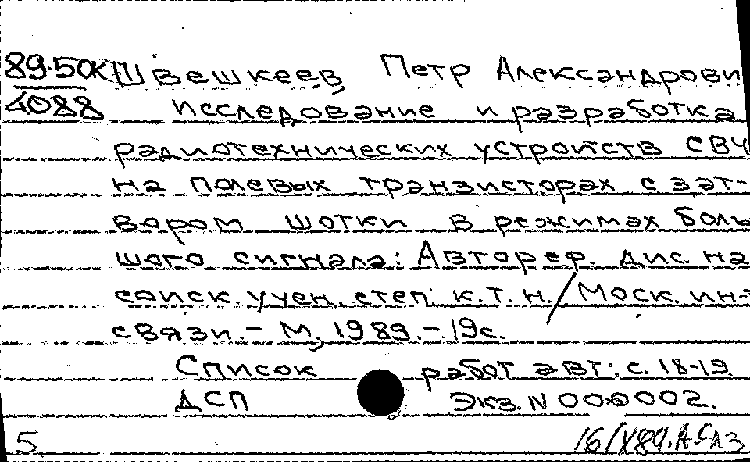 89-50К Швешкеев, Петр Александрови
4088 Исследование и разработка
радиотехнических устройств СВЧ
на полевых транзисторах с зат-
вором Шотки в режимах боль
шого сигнала: Автореф. дис. на
соиск. учен. степ. к.т.н./Моск. ин-т
связи. - М, 1989. - 19с.
Список работ авт.: с. 18-19
ДСП Экз. N 000002.
5 16/X89.